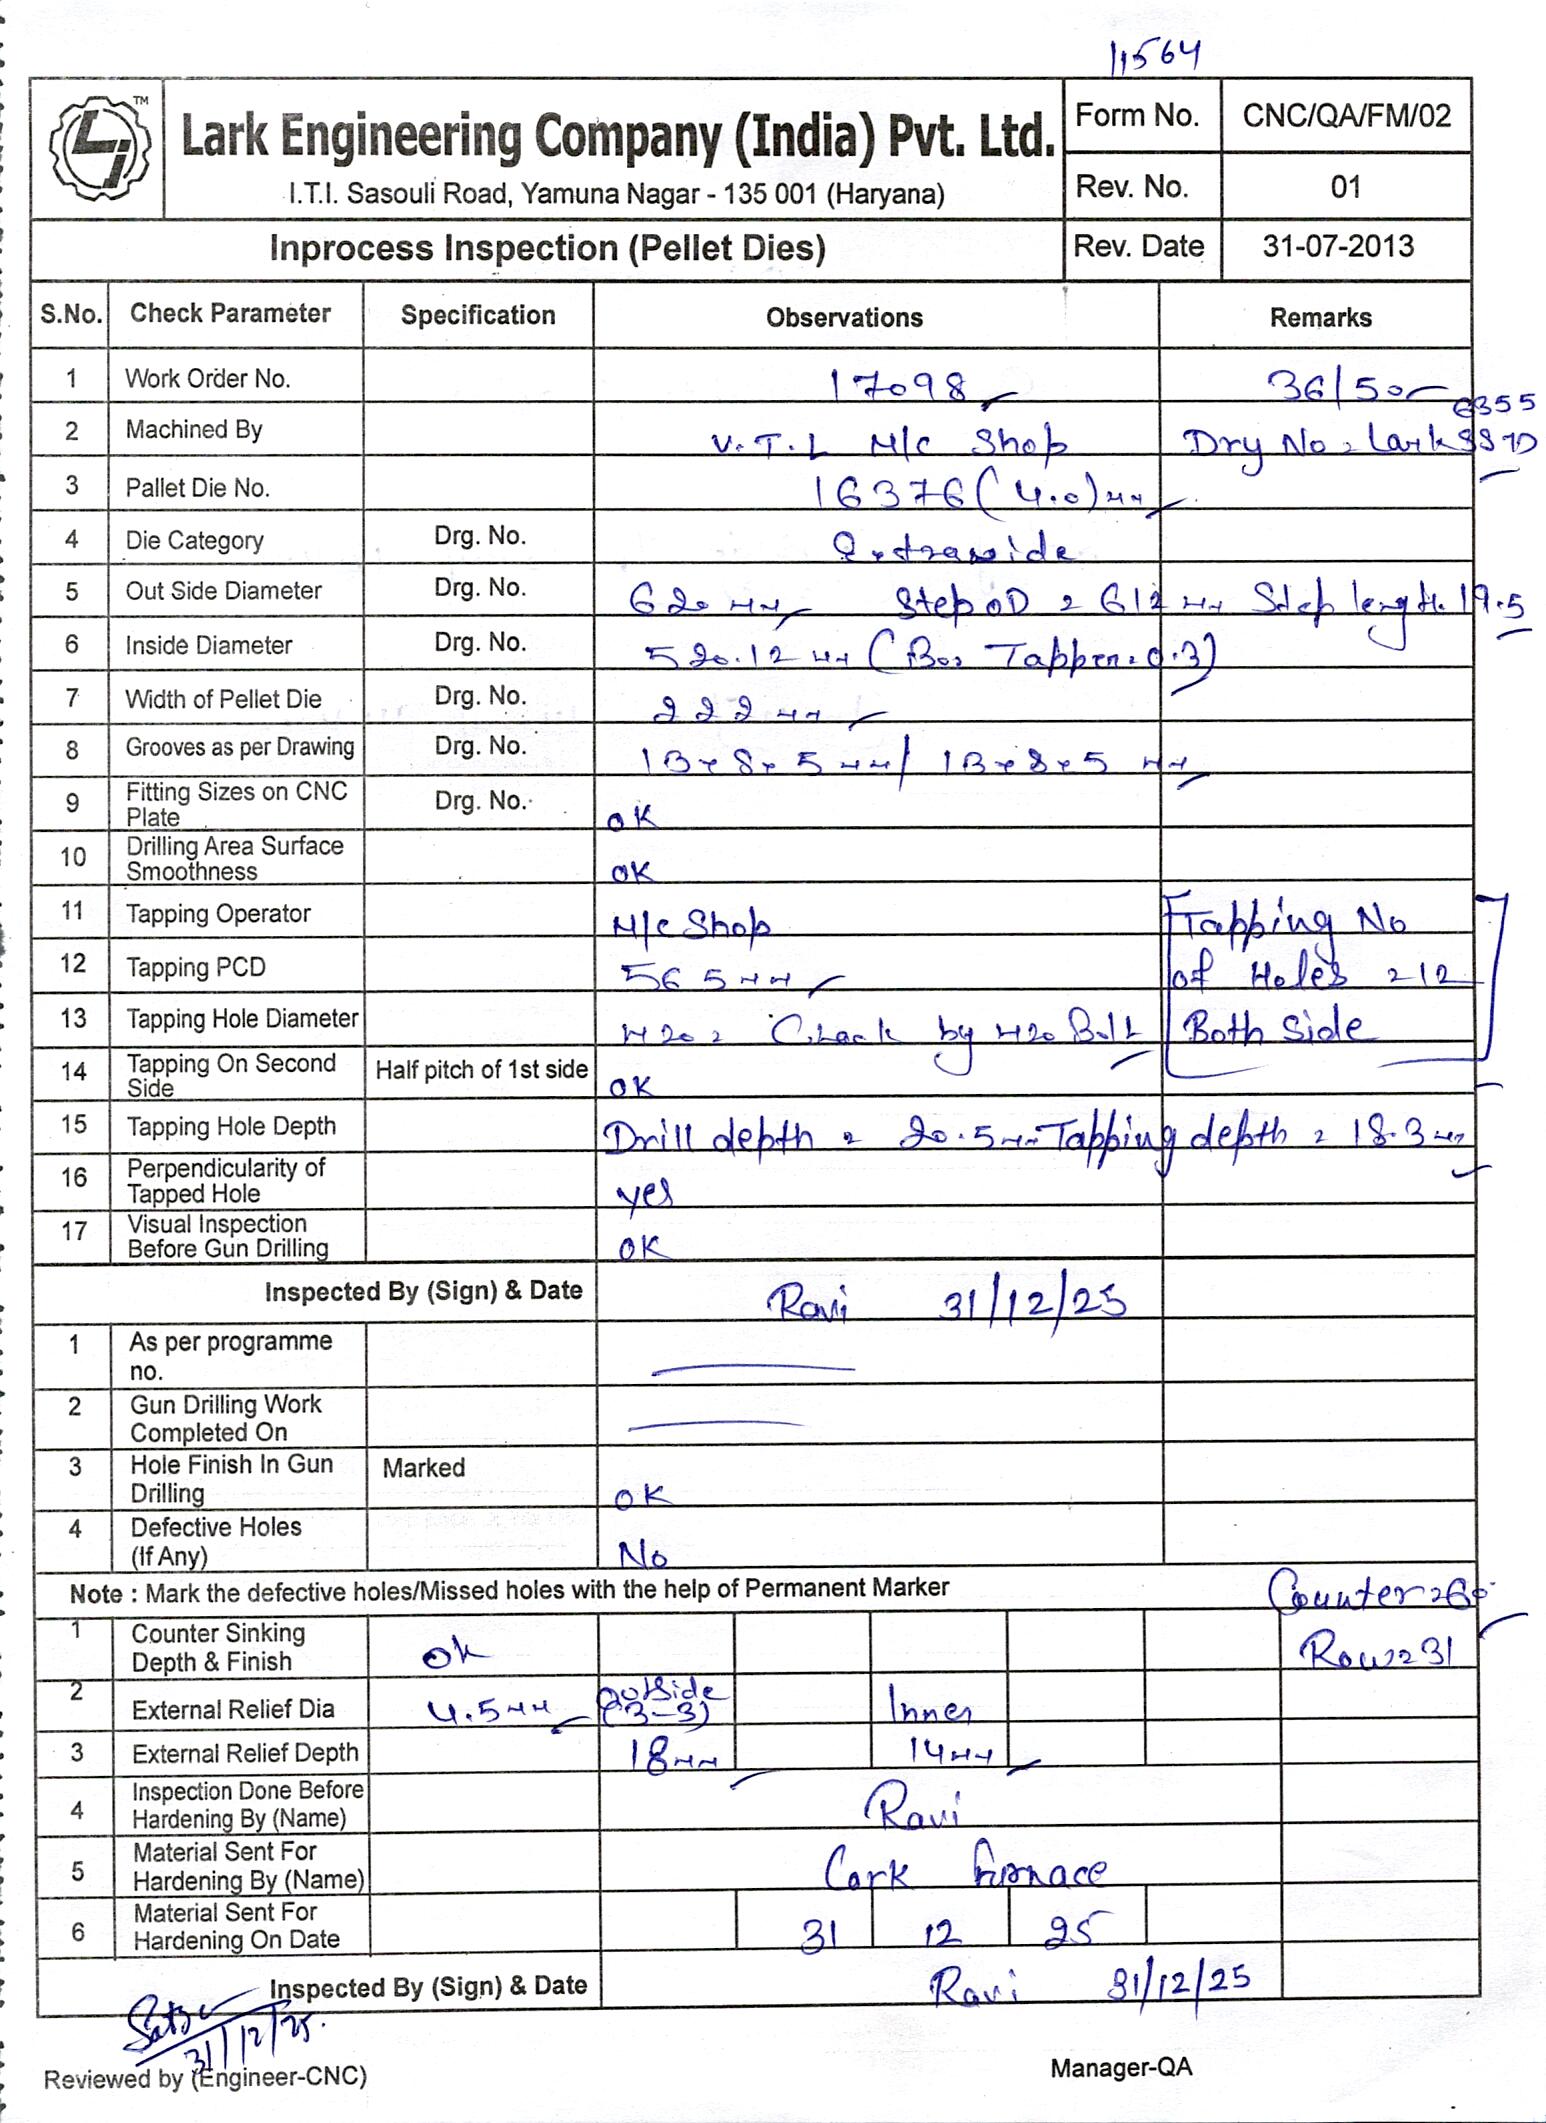 11564
TM
Lark Engineering Company (India) Pvt. Ltd.
I.T.I. Sasouli Road, Yamuna Nagar - 135 001 (Haryana)
Form No. CNC/QA/FM/02
Rev. No. 01
Inprocess Inspection (Pellet Dies) Rev. Date 31-07-2013
S.No. Check Parameter Specification Observations Remarks
1 Work Order No. 17098 36/50
6355
2 Machined By V.T.L M/c Shop Dry No = Lark
3 Pallet Die No. 16376 (4.0) mm
4 Die Category Drg. No. Extrawide
5 Out Side Diameter Drg. No. 620 mm Step OD = 612 mm Step length 19.5
6 Inside Diameter Drg. No. 520.12 mm ( Tapper = 0.3)
7 Width of Pellet Die Drg. No. 222 mm
8 Grooves as per Drawing Drg. No. 13x8x5 mm / 13x8x5 mm
9 Fitting Sizes on CNC Plate Drg. No. OK
10 Drilling Area Surface Smoothness OK
11 Tapping Operator M/c Shop Tapping No
12 Tapping PCD 565 mm of Holes = 12
13 Tapping Hole Diameter M20 = Chack by M20 Bolt Both Side
14 Tapping On Second Side Half pitch of 1st side OK
15 Tapping Hole Depth Drill depth = 20.5 mm Tapping depth = 18.3 mm
16 Perpendicularity of Tapped Hole yes
17 Visual Inspection Before Gun Drilling OK
Inspected By (Sign) & Date Ravi 31/12/25
1 As per programme no.
2 Gun Drilling Work Completed On
3 Hole Finish In Gun Drilling Marked OK
4 Defective Holes (If Any) No
Note : Mark the defective holes/Missed holes with the help of Permanent Marker Counter = 60
1 Counter Sinking Depth & Finish Ok Row = 31
2 External Relief Dia 4.5 mm Outside (3-3) Inner
3 External Relief Depth 18 mm 14 mm
4 Inspection Done Before Hardening By (Name) Ravi
5 Material Sent For Hardening By (Name) Lark Furnace
6 Material Sent For Hardening On Date 31 12 25
Inspected By (Sign) & Date Ravi 31/12/25
31/12/25.
Reviewed by (Engineer-CNC) Manager-QA